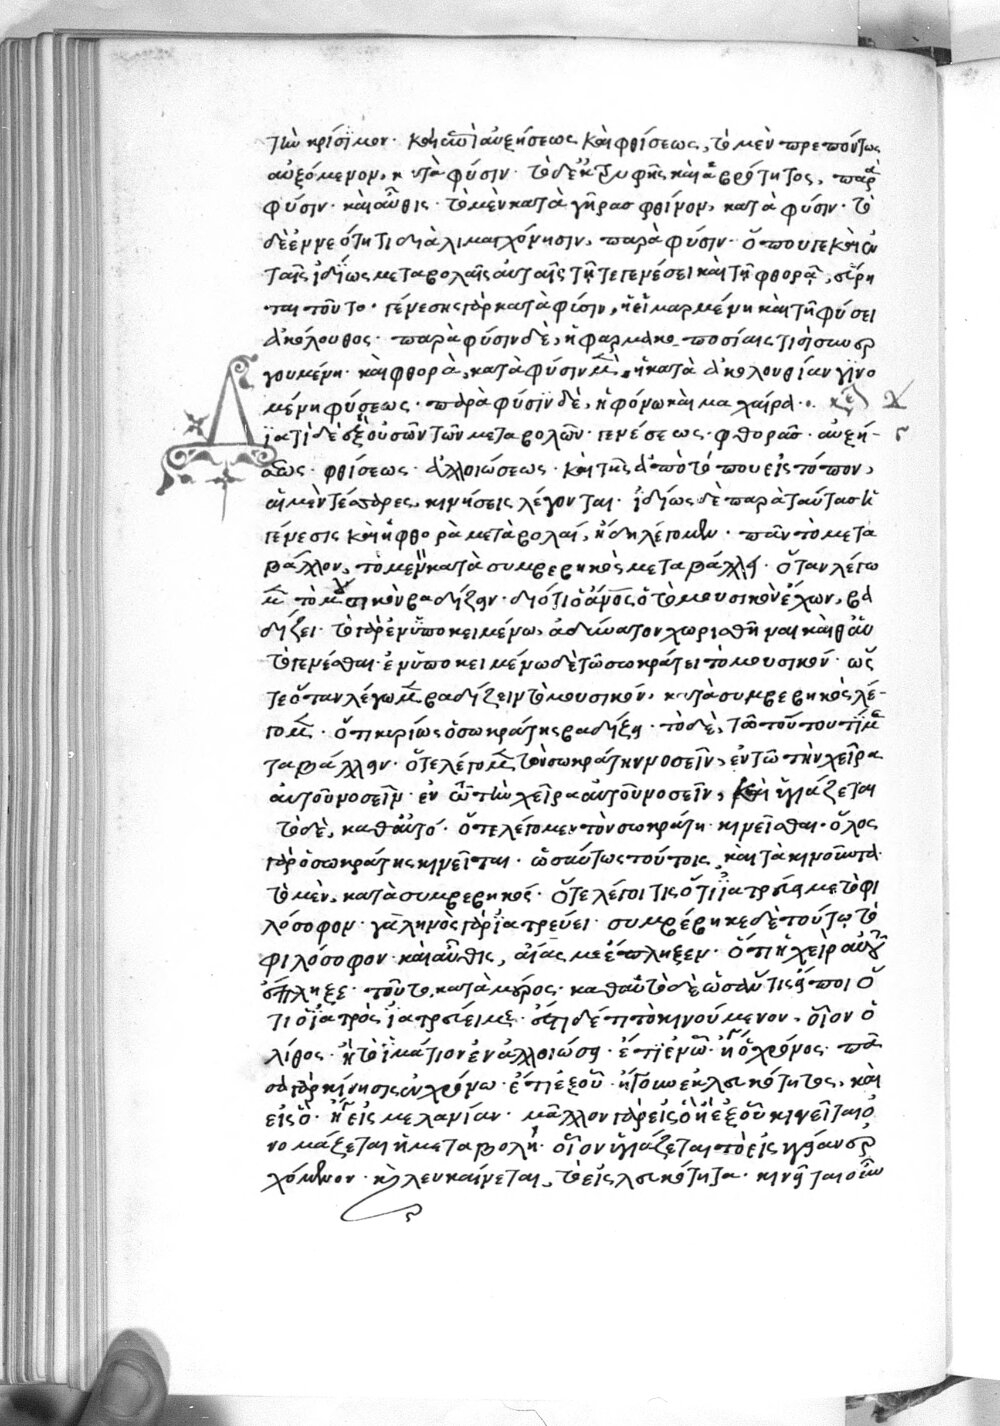 τὴν κρίσϊμον· καὶ ἐπὶ αὐξήσεως καὶ φθίσεως, τὸ μὲν πρεπόντως
αὐξόμενον, κατὰ φύσιν· τὸ δὲ ἐκ τρυφῆς καὶ ἁβρότητος, παρὰ
φύσιν· καὶ αὖθις· τὸ μὲν κατὰ γῆρας φθίνον, κατὰ φύσιν· τὸ
δὲ ἐν νεότητι διὰ λιμαγχόνησιν, παρὰ φύσιν· ὅπου γε καὶ ἐν
ταῖς ἰδΐως μεταβολαῖς αὐταῖς τῆ τε γενέσει καὶ τῆ φθορᾷ, εὕρη
ται τοῦτο· γένεσις γὰρ κατὰ φύσιν, ἡ εἱμαρμένη καὶ τῆ φύσει
ἀκόλουθος· παρὰ φύσιν δὲ, ἡ φαρμακοποσίαις τισὶ συνερ
γουμένη· καὶ φθορὰ, κατὰ φύσιν μὲν, ἡ κατὰ ἀκολουθίαν γϊνο
μένη φύσεως· παρὰ φύσϊν δὲ, ἡ φόνω καὶ μαχαίρα·
Δϊατί δὲ ἓξ οὐσῶν τῶν μεταβολῶν· γενέσεως· φθορᾶς· αὐξή-
σεως· φθίσεως· ἀλλοιώσεως· καὶ τῆς ἀπὸ τόπου εἰς τόπον,
αἱ μὲν τέσσαρες, κινήσεις λέγονται· ἰδΐως δὲ παρὰ ταύτας ἡ
γένεσις καὶ ἡ φθορὰ μεταβολαί, ἤδη λέγομεν· πᾶν τὸ μετα
βάλλον, τὸ μὲν κατὰ συμβεβηκὸς μεταβάλλει· ὅταν λέγω
μεν τὸ μουσικὸν βαδίζειν· διότι ὁ ἄνος ὁ τὸ μουσικὸν ἔχων, βα
δίζει· τὸ γὰρ ἐν ὑποκειμένω, ἀδύνατον χωρισθῆναι καὶ καθ' αὑ
τὸ γενέσθαι· ἐν ὑποκειμένω δὲ τῶ σωκράτει τὸ μουσικόν· ὥς
τε ὅταν λέγωμεν βαδίζειν τὸ μουσικόν, κατὰ συμβεβηκὸς λέ-
γομεν· ὅτι κυρίως ὁ σωκράτης βαδίζει· τὸ δὲ, τῶ τούτου τὶ με
ταβάλλειν· ὅτε λέγομεν τὸν σωκράτην νοσεῖν, ἐν τῶ τὴν χεῖρα
αὐτοῦ νοσεῖν· ἐν ὧ τὴν χεῖρα αὐτοῦ νοσεῖν, καὶ ὑγιάζεται
τὸ δὲ, καθ' αὑτό· ὅτε λέγομεν τὸν σωκράτη κινεῖσθαι· ὅλος
γὰρ ὁ σωκράτης κινεῖται· ὡσαύτως τούτοις, καὶ τὰ κινοῦντα·
τὸ μὲν, κατὰ συμβεβηκός· ὅτε λέγοι τις ὅτι ἰάτρευσέ με τὸ φι
λόσοφον· γαληνὸς γὰρ ἰατρεύει· συμβέβηκε δὲ τούτω τὸ
φιλόσοφον· καὶ αὖθις, αἴας με ἔπληξεν· ὅτι ἡ χεὶρ αὐτοῦ
ἔπληξε· τοῦτο, κατὰ μέρος· καθ' αὑτὸ δὲ ὡς αὔτις εἴποι ὅ
τι ὁ ἰατρὸς ἰάτρευέ με· ἔστι δέ τι τὸ κινούμενον, οἷον ὁ
λίθος· ἢ τὸ ἱμάτιον ἐν ἀλλοιώσει· ἔτι ἐν ὧ· ἤγουν ὁ χρόνος· πᾶ
σα γὰρ κίνησις ἐν χρόνω· ἔτι ἐξ οὗ· ἤγουν ἐκ λευκότητος, καὶ
εἰς ὅ· ἤγουν εἰς μελανίαν· μᾶλλον γὰρ εἰς ὃ ἢ ἐξ οὗ κινεῖται ὀ
νομάζεται ἡ μεταβολή· οἷον ὑγιάζεται τὸ εἰς ὑγείαν ἐρ
χόμενον· καὶ λευκαίνεται, τὸ εἰς λευκότητα· κινεῖται οὖν